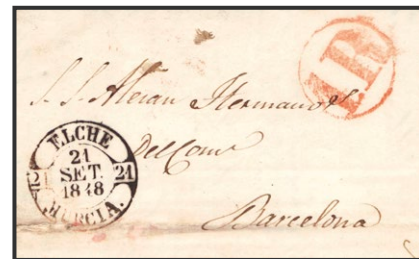 1R
S. S. Hermanos
Del Com
Barcelona
ELCHE
21
SET.
1848
21
MURCIA.